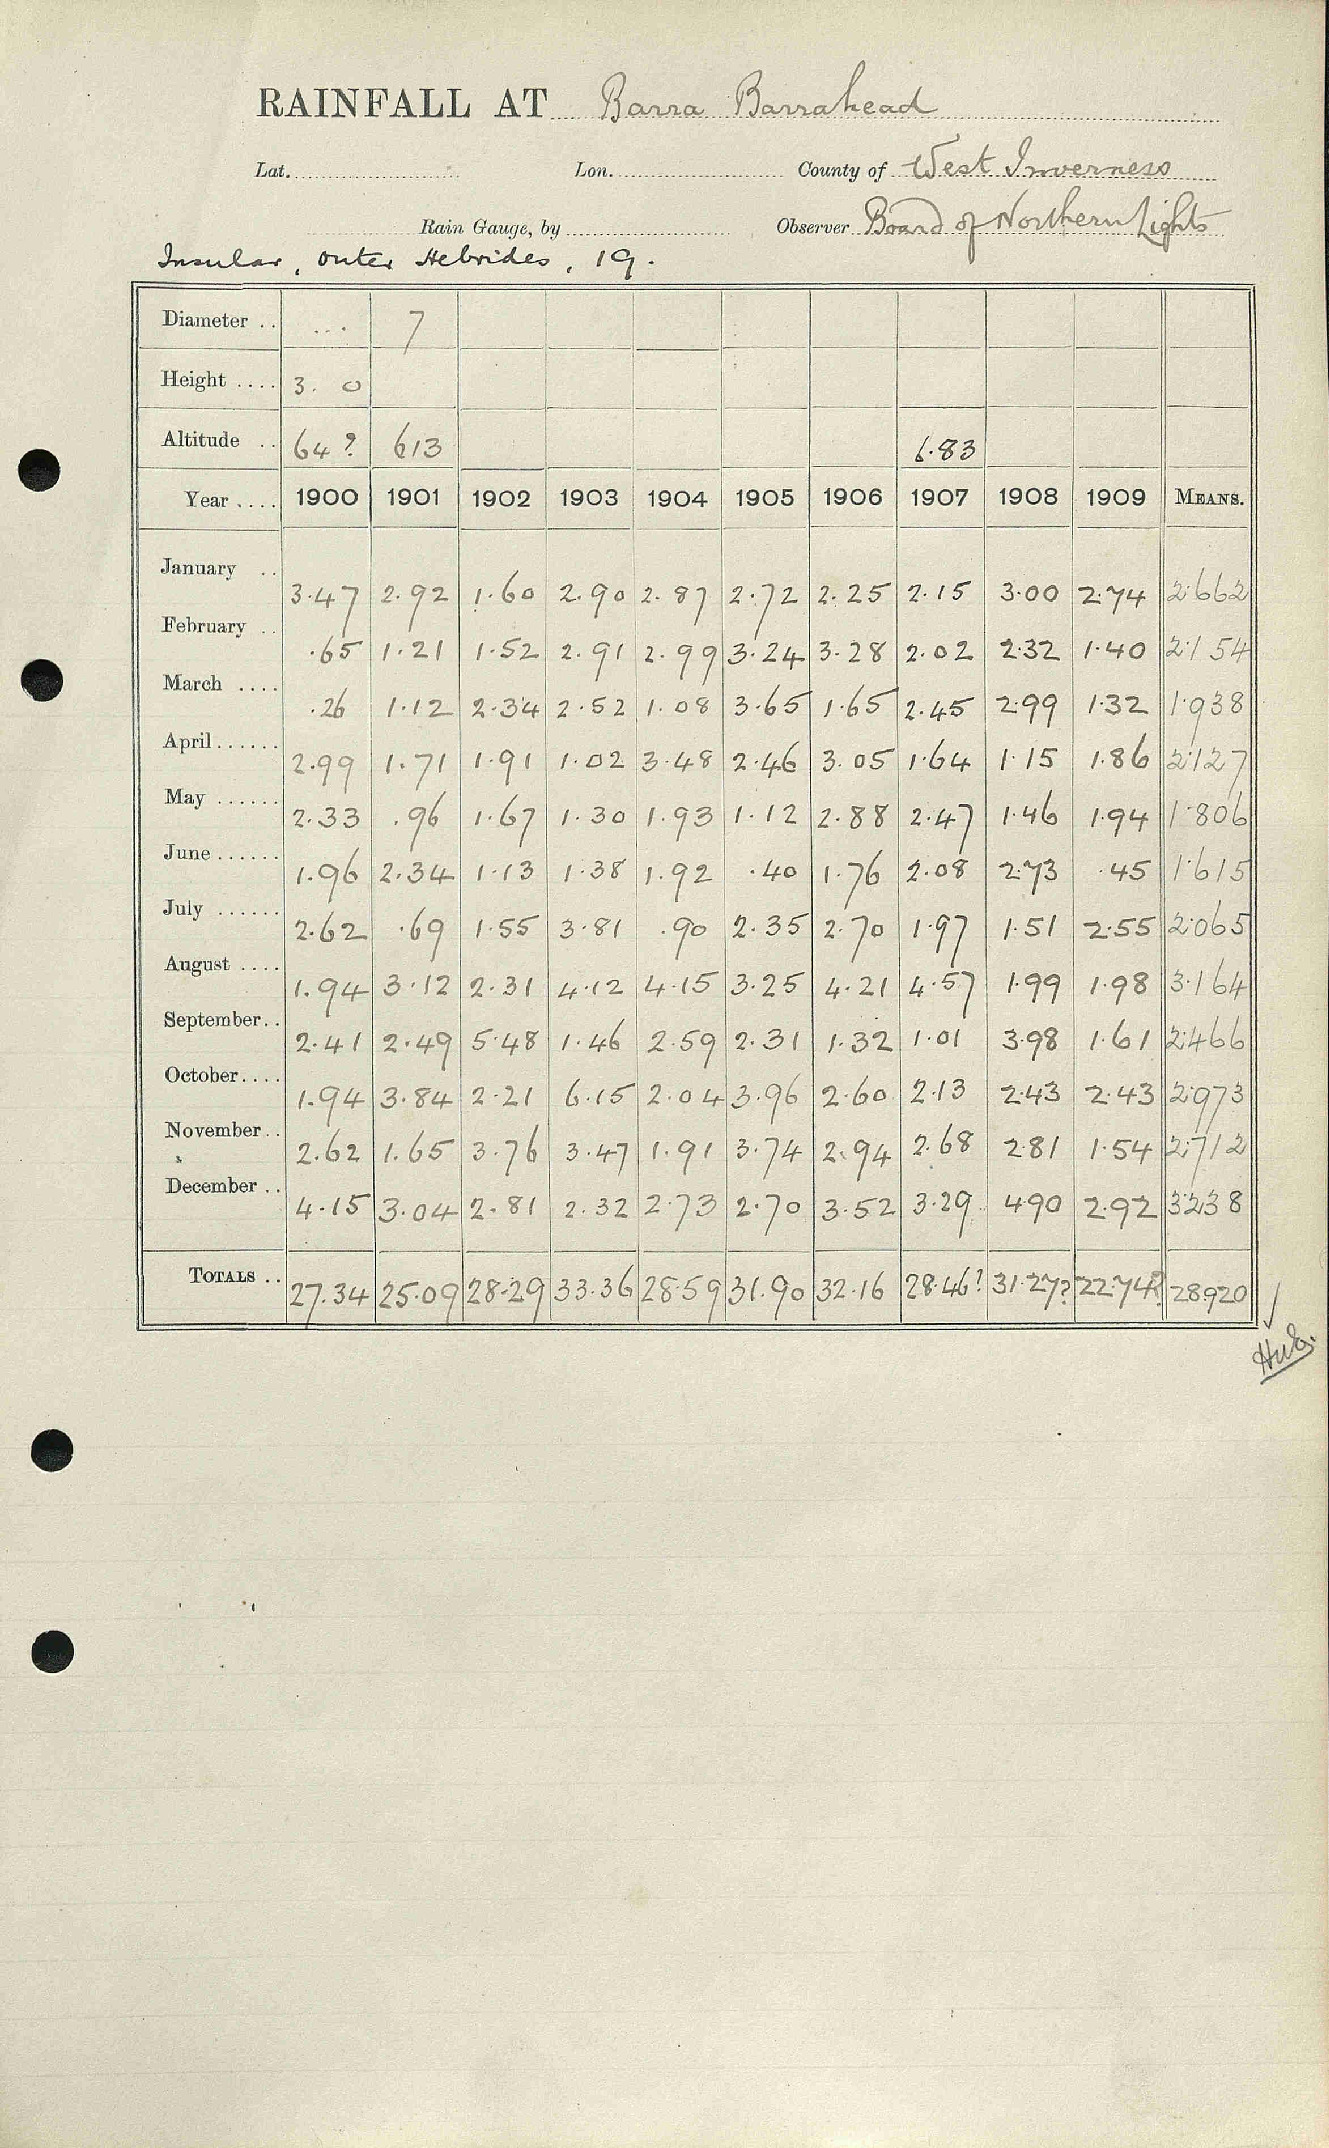 RAINFALL AT Barra Barrahead
Lat. Lon. County of West Inverness
Rain Gauge, by Observer Board of Northern Lights
Insular, outer Hebrides, 19.
Diameter .. ... 7
Height .... 3. 0
Altitude .. 64? 613 6.83
Year .... 1900 1901 1902 1903 1904 1905 1906 1907 1908 1909 MEANS.
January .. 3.47 2.92 1.60 2.90 2.87 2.72 2.25 2.15 3.00 2.74 2.662
February .. .65 1.21 1.52 2.91 2.99 3.24 3.28 2.02 2.32 1.40 2.154
March .... .26 1.12 2.34 2.52 1.08 3.65 1.65 2.45 2.99 1.32 1.938
April...... 2.99 1.71 1.91 1.02 3.48 2.46 3.05 1.64 1.15 1.86 2.127
May ...... 2.33 .96 1.67 1.30 1.93 1.12 2.88 2.47 1.46 1.94 1.806
June...... 1.96 2.34 1.13 1.38 1.92 .40 1.76 2.08 2.73 .45 1.615
July ...... 2.62 .69 1.55 3.81 .90 2.35 2.70 1.97 1.51 2.55 2.065
August .... 1.94 3.12 2.31 4.12 4.15 3.25 4.21 4.57 1.99 1.98 3.164
September.. 2.41 2.49 5.48 1.46 2.59 2.31 1.32 1.01 3.98 1.61 2.466
October.... 1.94 3.84 2.21 6.15 2.04 3.96 2.60 2.13 2.43 2.43 2.973
November.. 2.62 1.65 3.76 3.47 1.91 3.74 2.94 2.68 2.81 1.54 2.712
December .. 4.15 3.04 2.81 2.32 2.73 2.70 3.52 3.29 4.90 2.92 3.238
TOTALS .. 27.34 25.09 28.29 33.36 28.59 31.90 32.16 28.46? 31.27? 22.74? 28.920